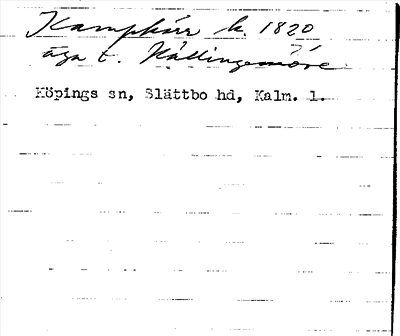 Kampkärr k. 1820
äga t. Källingemöre
Köpings sn, Slättbo hd, Kalm. l.